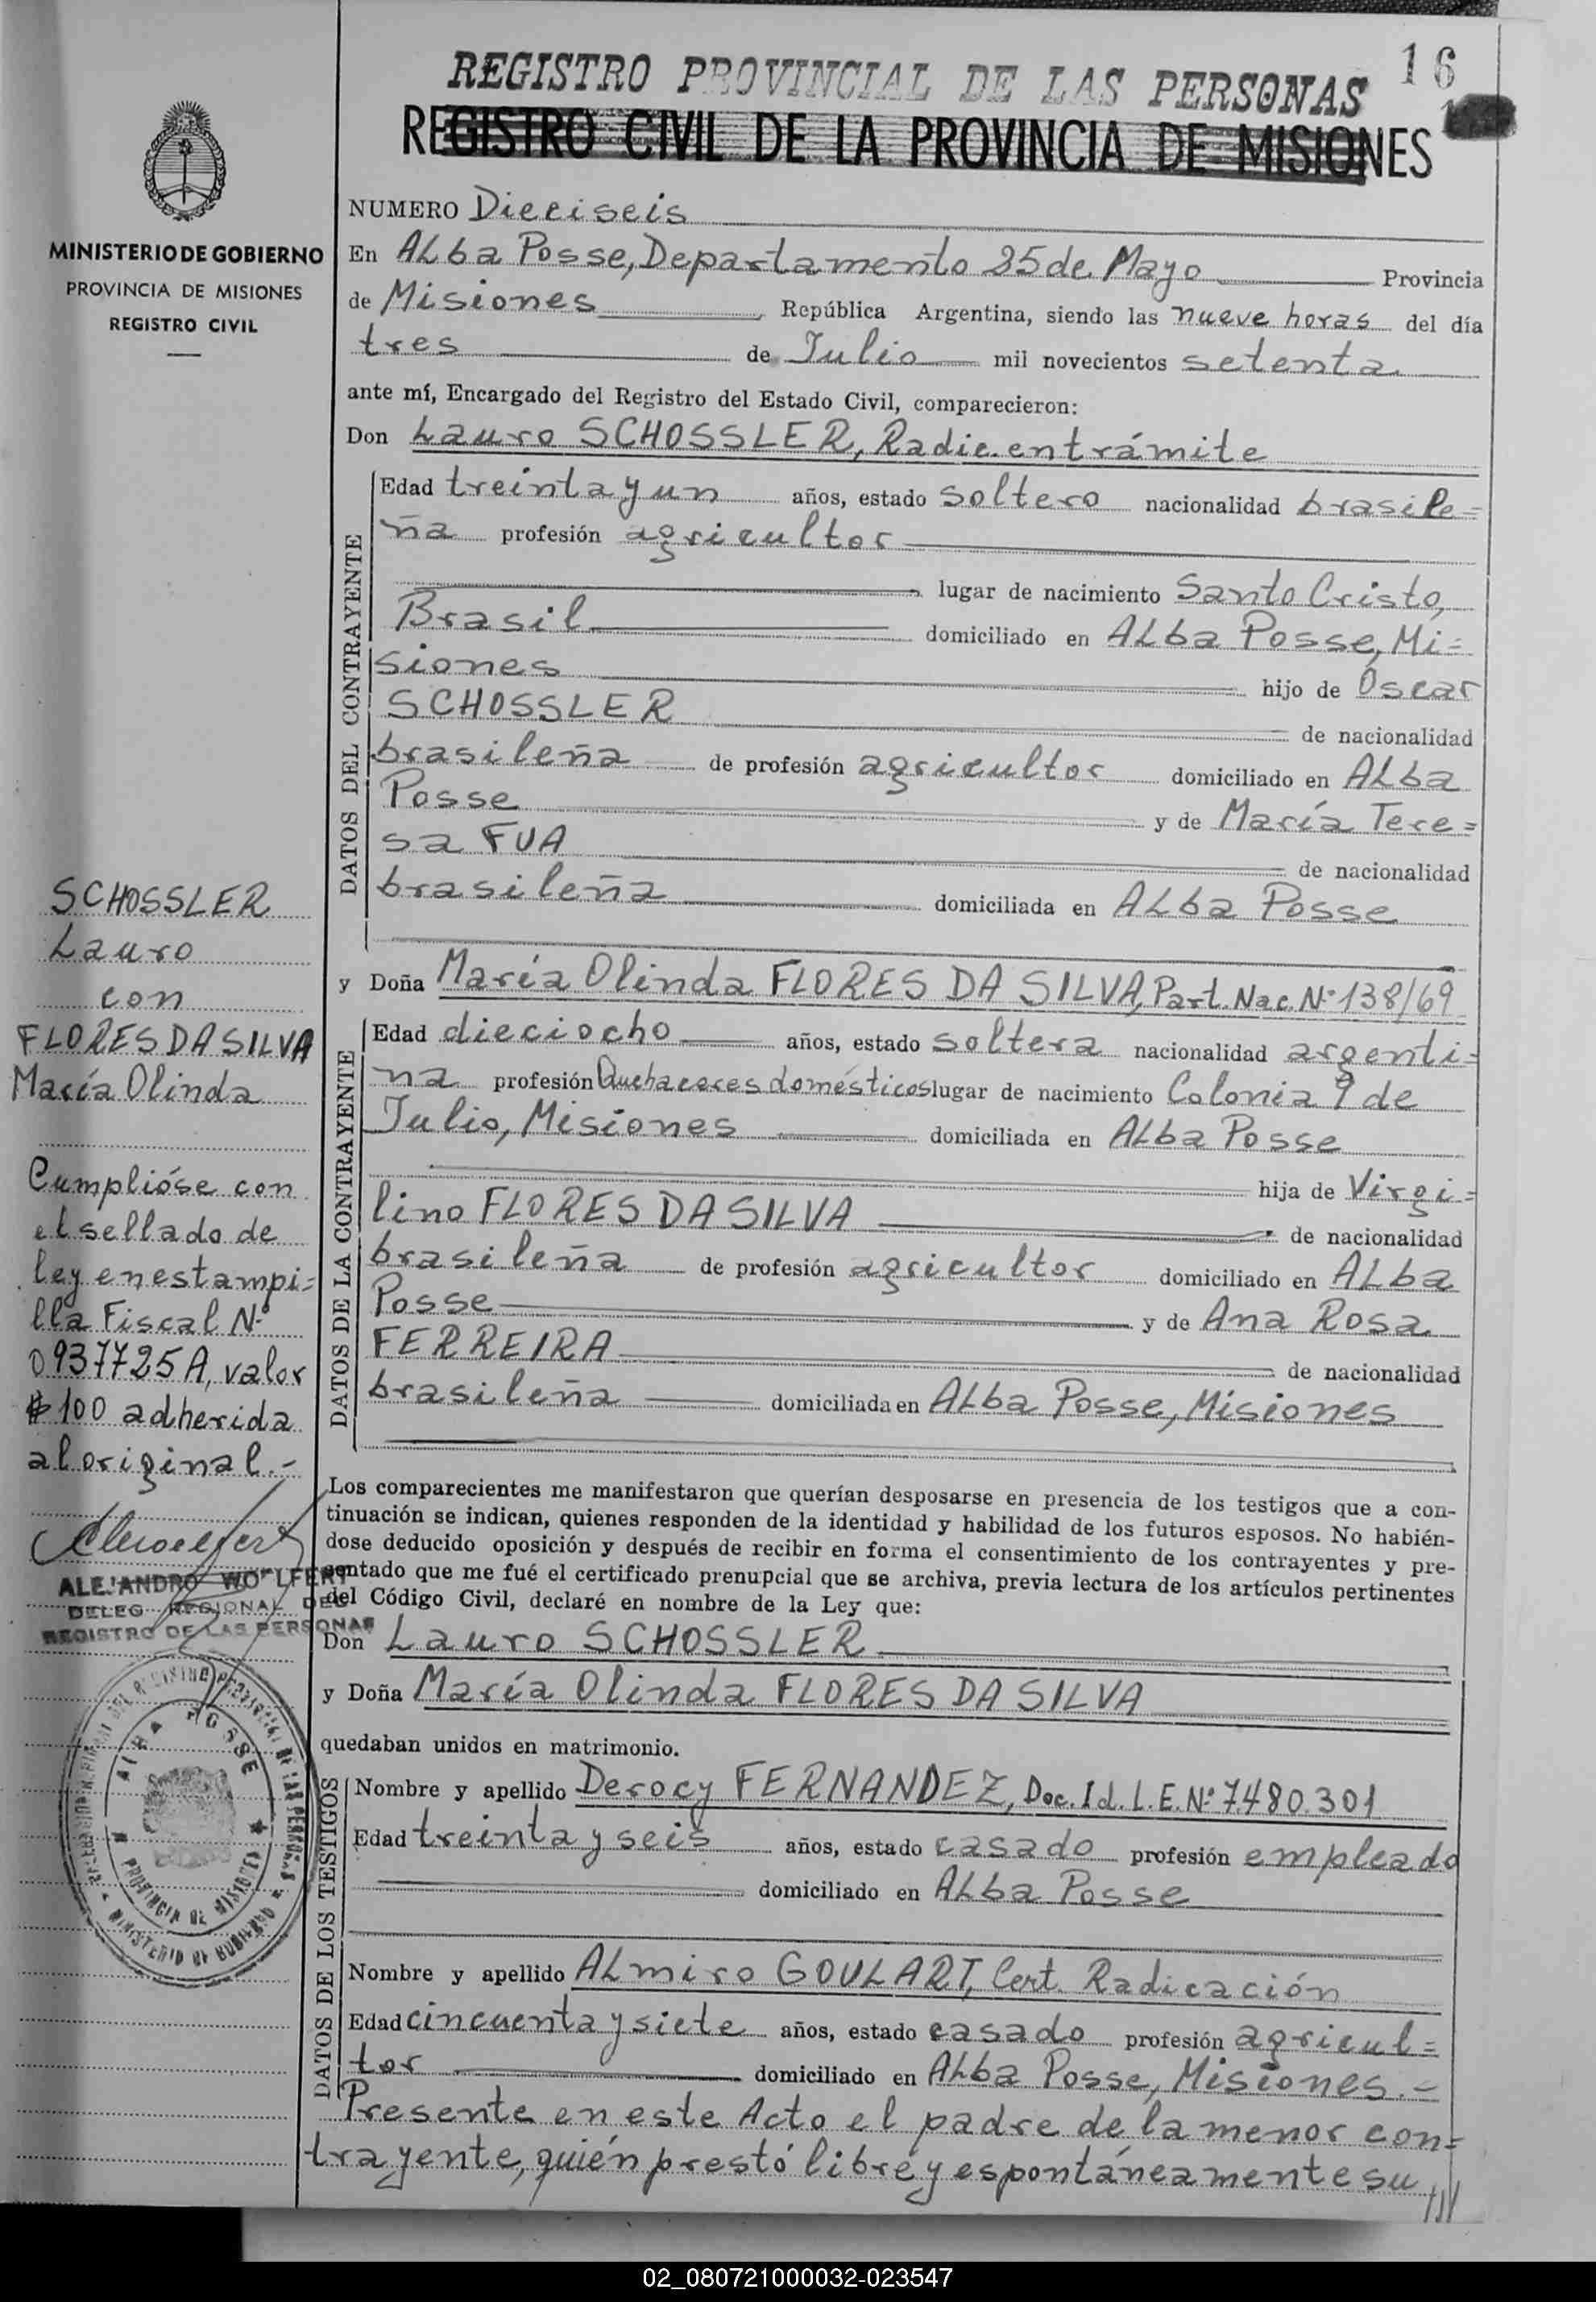 16
REGISTRO PROVINCIAL DE LAS PERSONAS
REGISTRO CIVIL DE LA PROVINCIA DE MISIONES
MINISTERIO DE GOBIERNO
PROVINCIA DE MISIONES
REGISTRO CIVIL
NUMERO Dieciseis
En ALba Posse, Departamento 25 de Mayo Provincia
de Misiones República Argentina, siendo las nueve horas del día
tres de Julio mil novecientos setenta
ante mí, Encargado del Registro del Estado Civil, comparecieron:
Don Lauro SCHOSSLER, Radic. en trámite
DATOS DEL CONTRAYENTE
Edad treinta y un años, estado soltero nacionalidad brasile=
ña profesión agricultor
lugar de nacimiento Santo Cristo,
Brasil domiciliado en ALba Posse, Mi=
siones hijo de Oscar
SCHOSSLER de nacionalidad
brasileña de profesión agricultor domiciliado en ALba
Posse y de María Tere=
sa FUA de nacionalidad
brasileña domiciliada en ALba Posse
y Doña María Olinda FLORES DA SILVA, Part. Nac. N° 138/69
DATOS DE LA CONTRAYENTE
Edad dieciocho años, estado soltera nacionalidad argenti=
na profesión Quehaceres domésticos lugar de nacimiento Colonia 9 de
Julio, Misiones domiciliada en ALba Posse
hija de Virgi=
lino FLORES DA SILVA de nacionalidad
brasileña de profesión agricultor domiciliado en ALba
Posse y de Ana Rosa
FERREIRA de nacionalidad
brasileña domiciliada en ALba Posse, Misiones
Los comparecientes me manifestaron que querían desposarse en presencia de los testigos que a con-
tinuación se indican, quienes responden de la identidad y habilidad de los futuros esposos. No habién-
dose deducido oposición y después de recibir en forma el consentimiento de los contrayentes y pre-
sentado que me fué el certificado prenupcial que se archiva, previa lectura de los artículos pertinentes
del Código Civil, declaré en nombre de la Ley que:
Don Lauro SCHOSSLER
y Doña María Olinda FLORES DA SILVA
quedaban unidos en matrimonio.
DATOS DE LOS TESTIGOS
Nombre y apellido Derocy FERNANDEZ, Doc. Id. L.E. N° 7.480.301
Edad treinta y seis años, estado casado profesión empleado
domiciliado en ALba Posse
Nombre y apellido ALmiro GOULART, Cert. Radicación
Edad cincuenta y siete años, estado casado profesión agricul=
tor domiciliado en ALba Posse, Misiones.-
Presente en este Acto el padre de la menor con=
trayente, quién prestó libre y espontáneamente su ///
SCHOSSLER
Lauro
con
FLORES DA SILVA
María Olinda
Cumplióse con
el sellado de
ley en estampi=
lla Fiscal N°
0937725A, valor
$ 100 adherida
al original.-
ALEJANDRO WOLFERT
DELEG REGIONAL DEL
REGISTRO DE LAS PERSONAS
ALBA POSSE
PROVINCIA DE MISIONES
MINISTERIO DE GOBIERNO
02_080721000032-023547